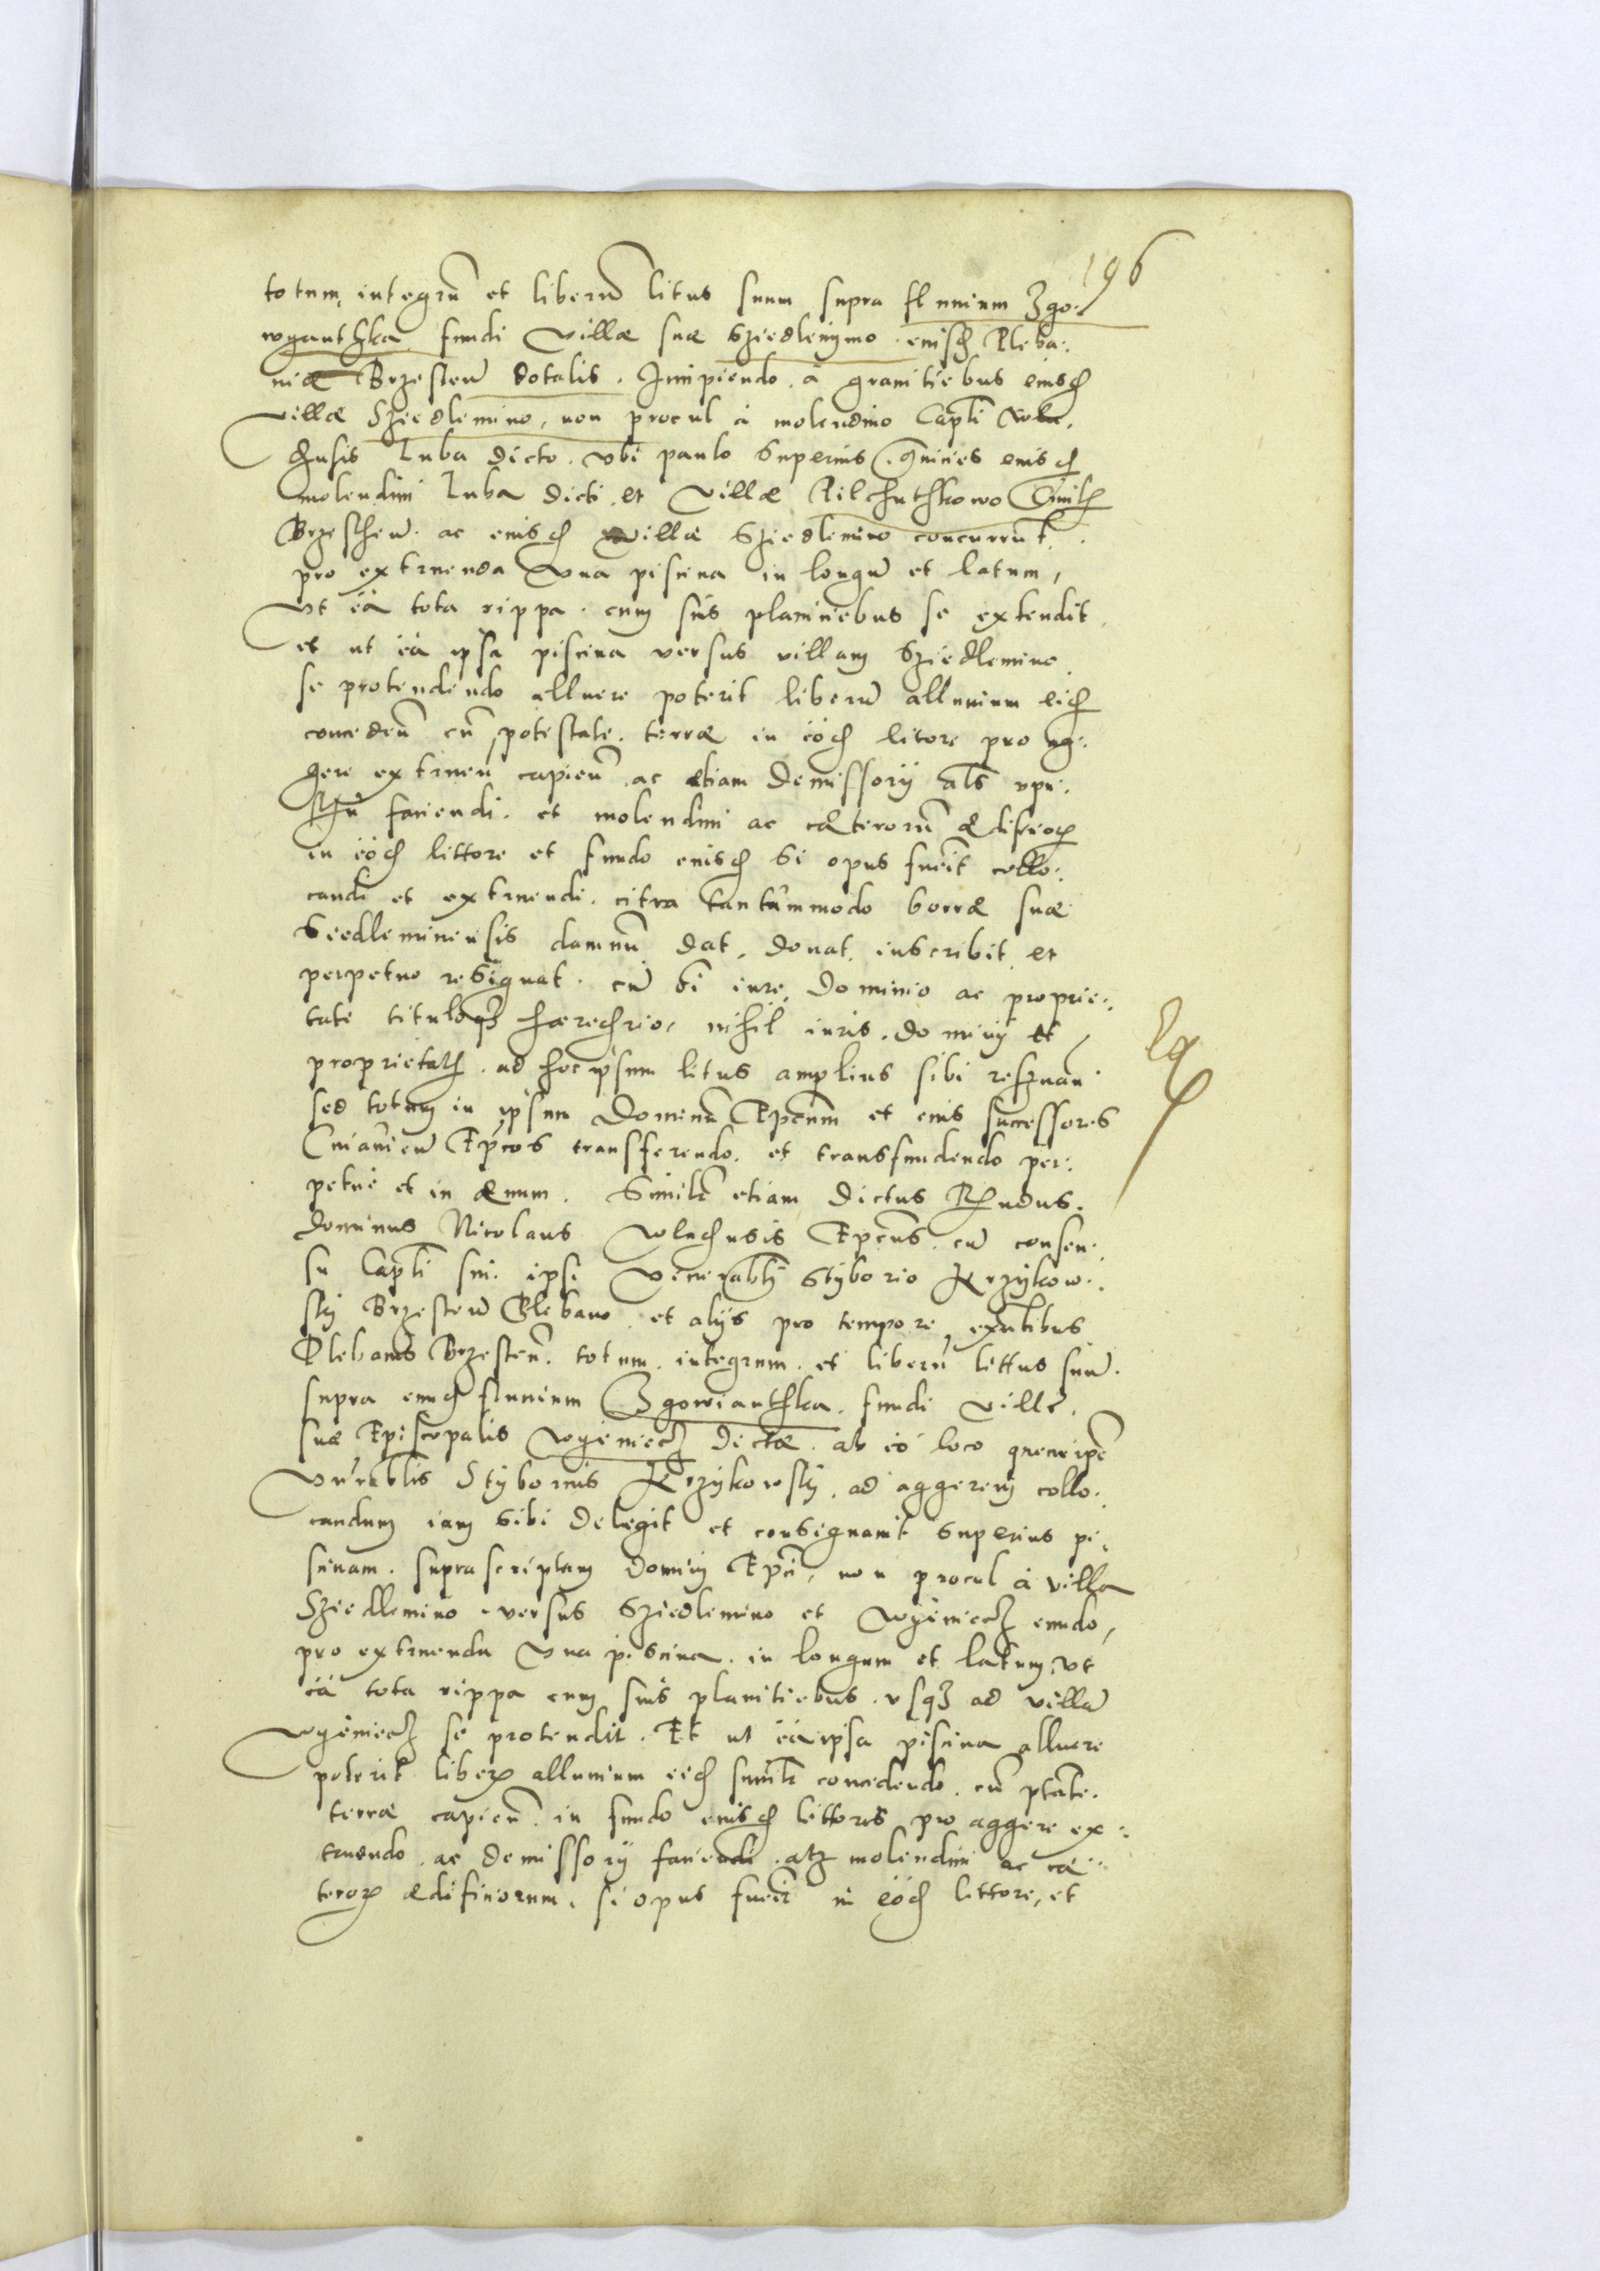 196
totum, integrũ et liberũ litus suum supra fluuium Zgo:
wyanthka fundi Villæ suæ Sziedlenymo eiusd Pleba:
niæ Brzesteñ dotalis. Incipiendo. à granitiebus eiusd
villæ Sziedlemino, non procul à molendino Capti Wla.
dusis Luba dicto. vbi paulo superius eiusd
molendini Luba dicti et Villæ Pilchuthkowo
Brzescheñ. ac eiusd villæ Sziedlemino concurrunt.
pro extruenda Vna piscina in longũ et latum,
Vt ea tota rippa. cum suis planiciebus se extendit
et ut ea ipsa piscina versus villam Sziedlemino
se protendendo alluere poterit liberũ alluuium eid
concedeñ cũ potestate. terræ in eod litore pro ag:
gere extrueñ capieñ ac etiam demissorij als vpu:
faciendi. et molendini ac cæterorũ ædificior
in eod littore et fundo eiusd si opus fuerit collo:
candi et extruendi. citra tantummodo borræ suæ
Siedleminensis damnũ dat, donat, inscribit et
perpetuo resignat. cũ oi iure, dominio ac proprie:
tate tituloq hæredrio, nihil iuris. dominij et
proprietatis. ad hoc ipsum litus amplius sibi reseruañ
sed totum in ipsum Dominũ Epcum et eius successores
Cuiauieñ Epcos transferendo. et transfundendo per:
petue et in æuum. Similr etiam dictus Rndus.
Dominus Nicolaus Wladusis Epcus. cũ consen:
su Capti sui. ipsi Venerabli Styborio Krzykow:
sky Brzesteñ Plebano. et alijs pro tempore exñtibus
Plebanis Brzesteñ. totum. integrum. et liberũ littus suũ.
supra eund fluuium Zgowianthka. fundi Villę.
suæ Episcopalis Wyeniecz dictæ. ab eo loco quem ipse
Vnrablis Styborius Krzykowsky. ad aggerem collo:
candum iam sibi delegit et consignauit superius pi:
scinam. suprascriptam Domini Epci, non procul à villa
Sziedlemino. versus Sziedlemino et Wyeniecz eundo,
pro extruenda Vna piscina. in longum et latum, vt
ea tota rippa cum suis planitiebus. vsq ad villã
Wyeniecz se protendit. Et ut ea ipsa piscina alluere
poterit liber alluuium eid similr concedendo. cũ ptate.
terræ capieñ. in fundo eiusd littoris pro aggere ex:
truendo. ac demissorij faciendi. atq molendini ac cæ:
teror ædificiorum. si opus fuerit in eod littore, et